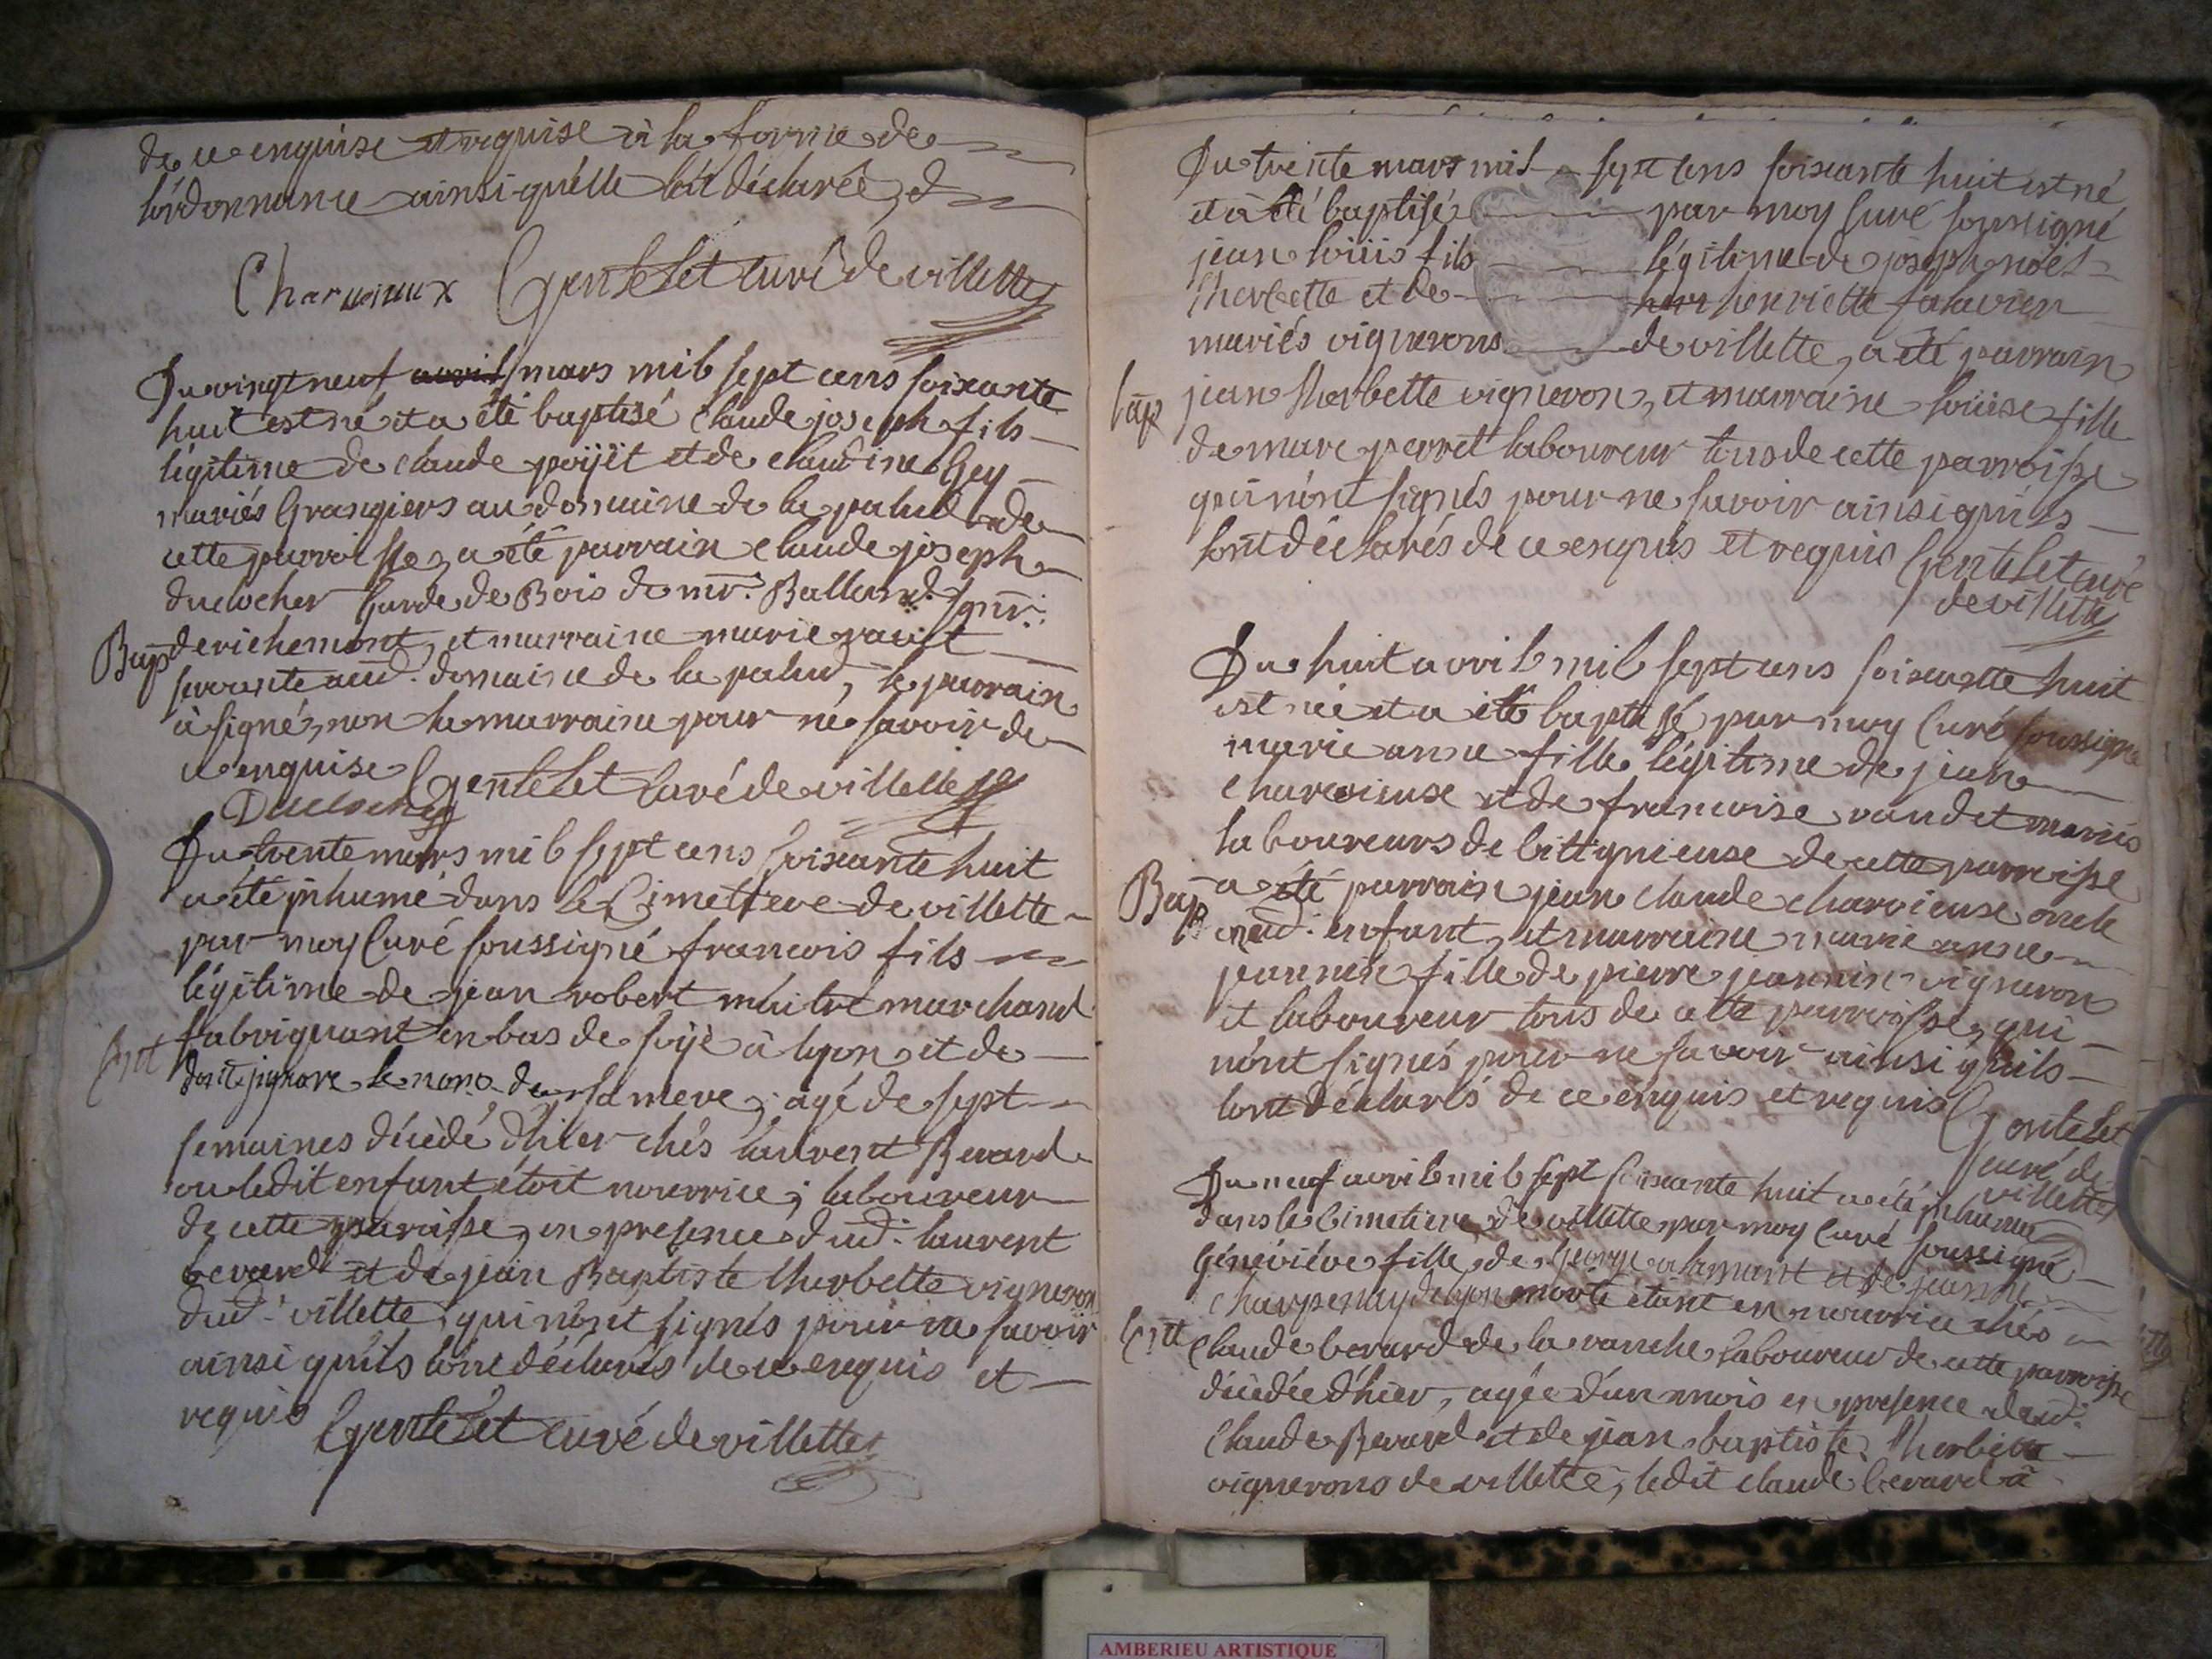 de ce enquise et requise à la forme de
l'ordonnance ainsi qu'elle l'a déclarée,
Gentelet curé de villette
Du vingt neuf avril mars mil sept cens soixante
huit est né et a été baptisé Claude joseph fils
légitime de claude poÿet et de claudine Gey
mariés Grangiers au domaine de la palud de
cette parroisse, a été parrain claude joseph
duclocher Garde de Bois de mr. Balland sgnr.
Bap
de richemont, et marraine marie ravet
servante aud. domaine de la palud, le parrain
à signé, non la marraine pour ne savoir de
ce enquise Gentelet Curé de villette
Duclocher
Du trente mars mil sept cens soixante huit
a été inhumé dans le Cimettere de villette
par moy Curé soussigné francois fils
légitime de jean robert maitre marchand
fabriquant en bas de soÿe à lyon et de
Ent
dont j'ignore le nom de sa mere, agé de sept
semaines décédé d'hier chés laurent Berard
ou ledit enfant étoit nourrice; laboureur
de cette paroisse, en presence dud. laurent
berard et de jean Baptiste Therbette vigneron
dud. villette, qui n'ont signés pour ne savoir
ainsi qu'ils l'ont déclarés de ce enquis et
requis Gentelet curé de villette
Du trente mars mil sept cens soixante huit est né
et à été baptisé par moy Curé soussigné
jean loüis fils légitime de joseph noël
Therbette et de henriette
mariés vignerons de villette, a été parrain
bap
jean Therbette vigneron, et marraine loüise fille
de marc perret laboureur tous de cette parroisse
qui n'ont signés pour ne savoir ainsi qu'ils
l'ont déclarés de ce enquis et requis Gentelet curé
de villette
Du huit avril mil sept cens soixante huit
est née et a été baptisé par moy Curé soussigné
marie anne fille légitime de jean
charvieuse et de francoise vaudet mariés
laboureurs de bittignieuse de cette parroisse
Bap
a été parrain jean claude charvieuse oncle
aud. enfant, et marraine marie anne
jeannin fille de pierre jeannin vigneron
et laboureur tous de cette parroisse, qui
n'ont signés pour ne savoir ainsi qu'ils
l'ont déclarés de ce enquis et requis Gentelet
curé de
villette
Du neuf avril mil sept soixante huit a été inhumée
dans le Cimetiere de villette par moy Curé soussigné
Généviéve fille de George et de jeanne
charpenay de lyon morte étant en nourrice chés
Ent
Claude berard de la ranche laboureur de cette parroisse
décédée d'hier, agée d'un mois en presence dud.
Claude Berard et de jean baptiste Therbette
vignerons de villette, ledit claude berard à
AMBERIEU ARTISTIQUE